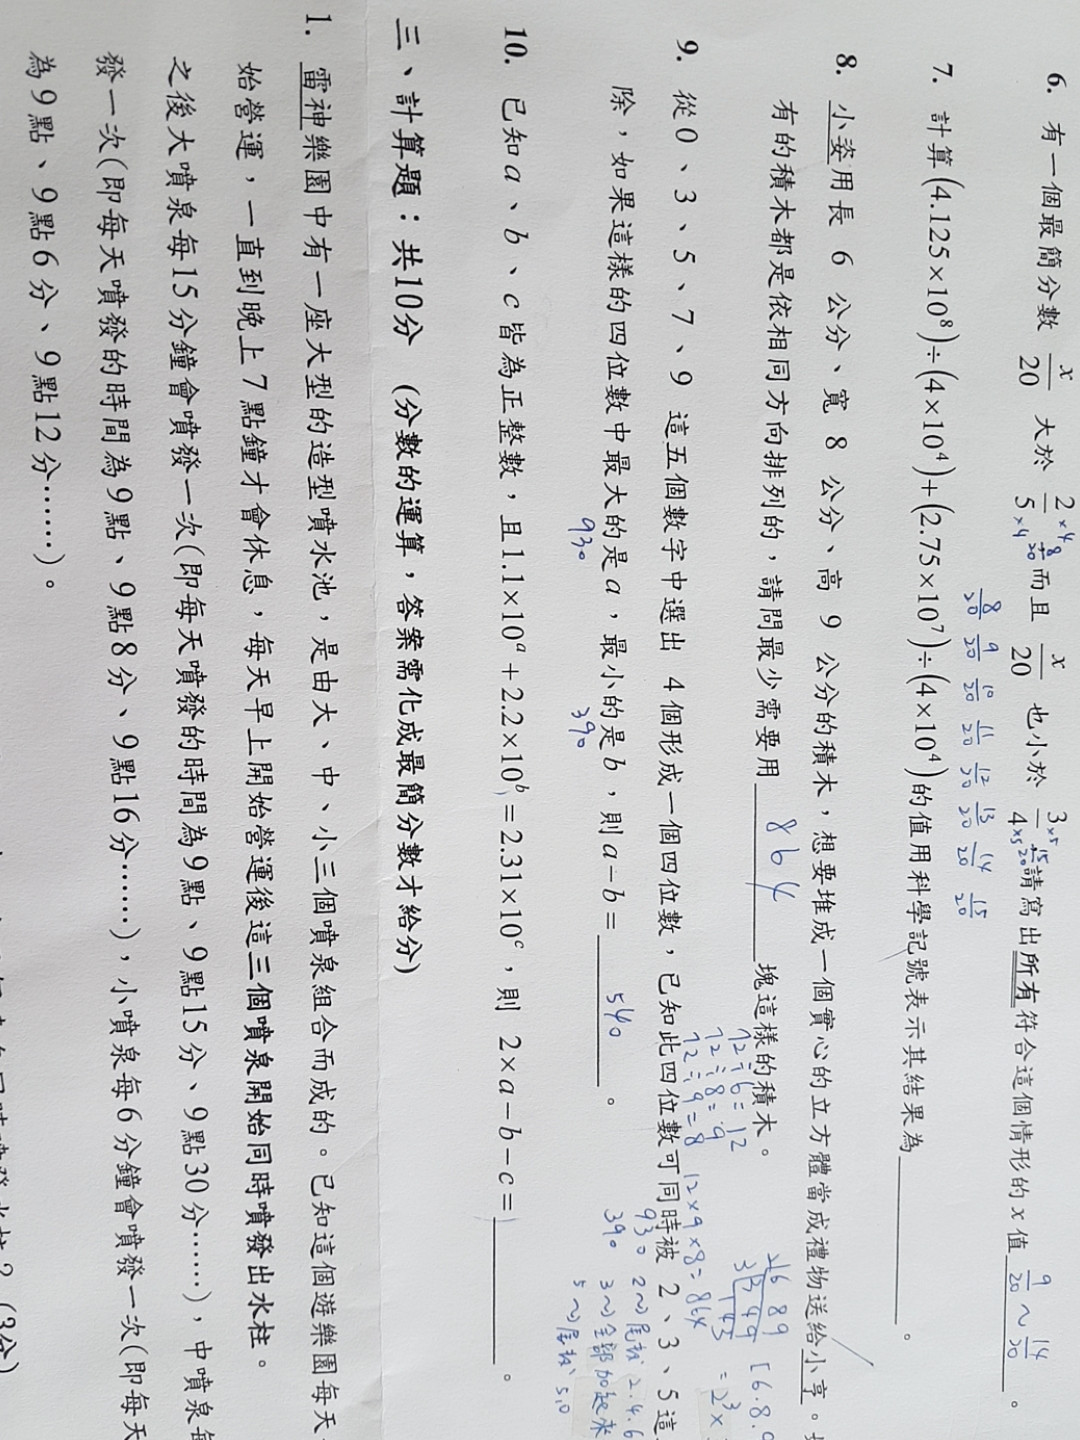 6. 有一個最簡分數 x/20 大於 2/5 而且 x/20 也小於 3/4 請寫出所有符合這個情形的 x 值 9/20 ~ 14/20 。
×4 8/20 ×4
×5 15/20 ×5
8/20 9/20 10/20 11/20 12/20 13/20 14/20 15/20
7. 計算(4.125×10⁸)÷(4×10⁴)+(2.75×10⁷)÷(4×10⁴)的值用科學記號表示其結果為 。
8. 小姿用長 6 公分、寬 8 公分、高 9 公分的積木，想要堆成一個實心的立方體當成禮物送給小享。
有的積木都是依相同方向排列的，請問最少需要用 864 塊這樣的積木。
72÷6=12
72÷8=9
72÷9=8
12×9×8=864
[6.8.9
=2³×
9. 從0、3、5、7、9 這五個數字中選出 4 個形成一個四位數，已知此四位數可同時被 2、3、5這
除，如果這樣的四位數中最大的是a，最小的是b，則a−b= 540 。
930
390
930
390
2~尾數、2.4.6
3~全部加起來
5~尾數、5,0
10. 已知a、b、c皆為正整數，且1.1×10ᵃ+2.2×10ᵇ=2.31×10ᶜ，則 2×a−b−c= 。
三、計算題：共10分 (分數的運算，答案需化成最簡分數才給分)
1. 雷神樂園中有一座大型的造型噴水池，是由大、中、小三個噴泉組合而成的。已知這個遊樂園每天
始營運，一直到晚上7點鐘才會休息，每天早上開始營運後這三個噴泉開始同時噴發出水柱。
之後大噴泉每15分鐘會噴發一次(即每天噴發的時間為9點、9點15分、9點30分……)，中噴泉每
發一次(即每天噴發的時間為9點、9點8分、9點16分……)，小噴泉每6分鐘會噴發一次(即每天
為9點、9點6分、9點12分……)。
(3分)